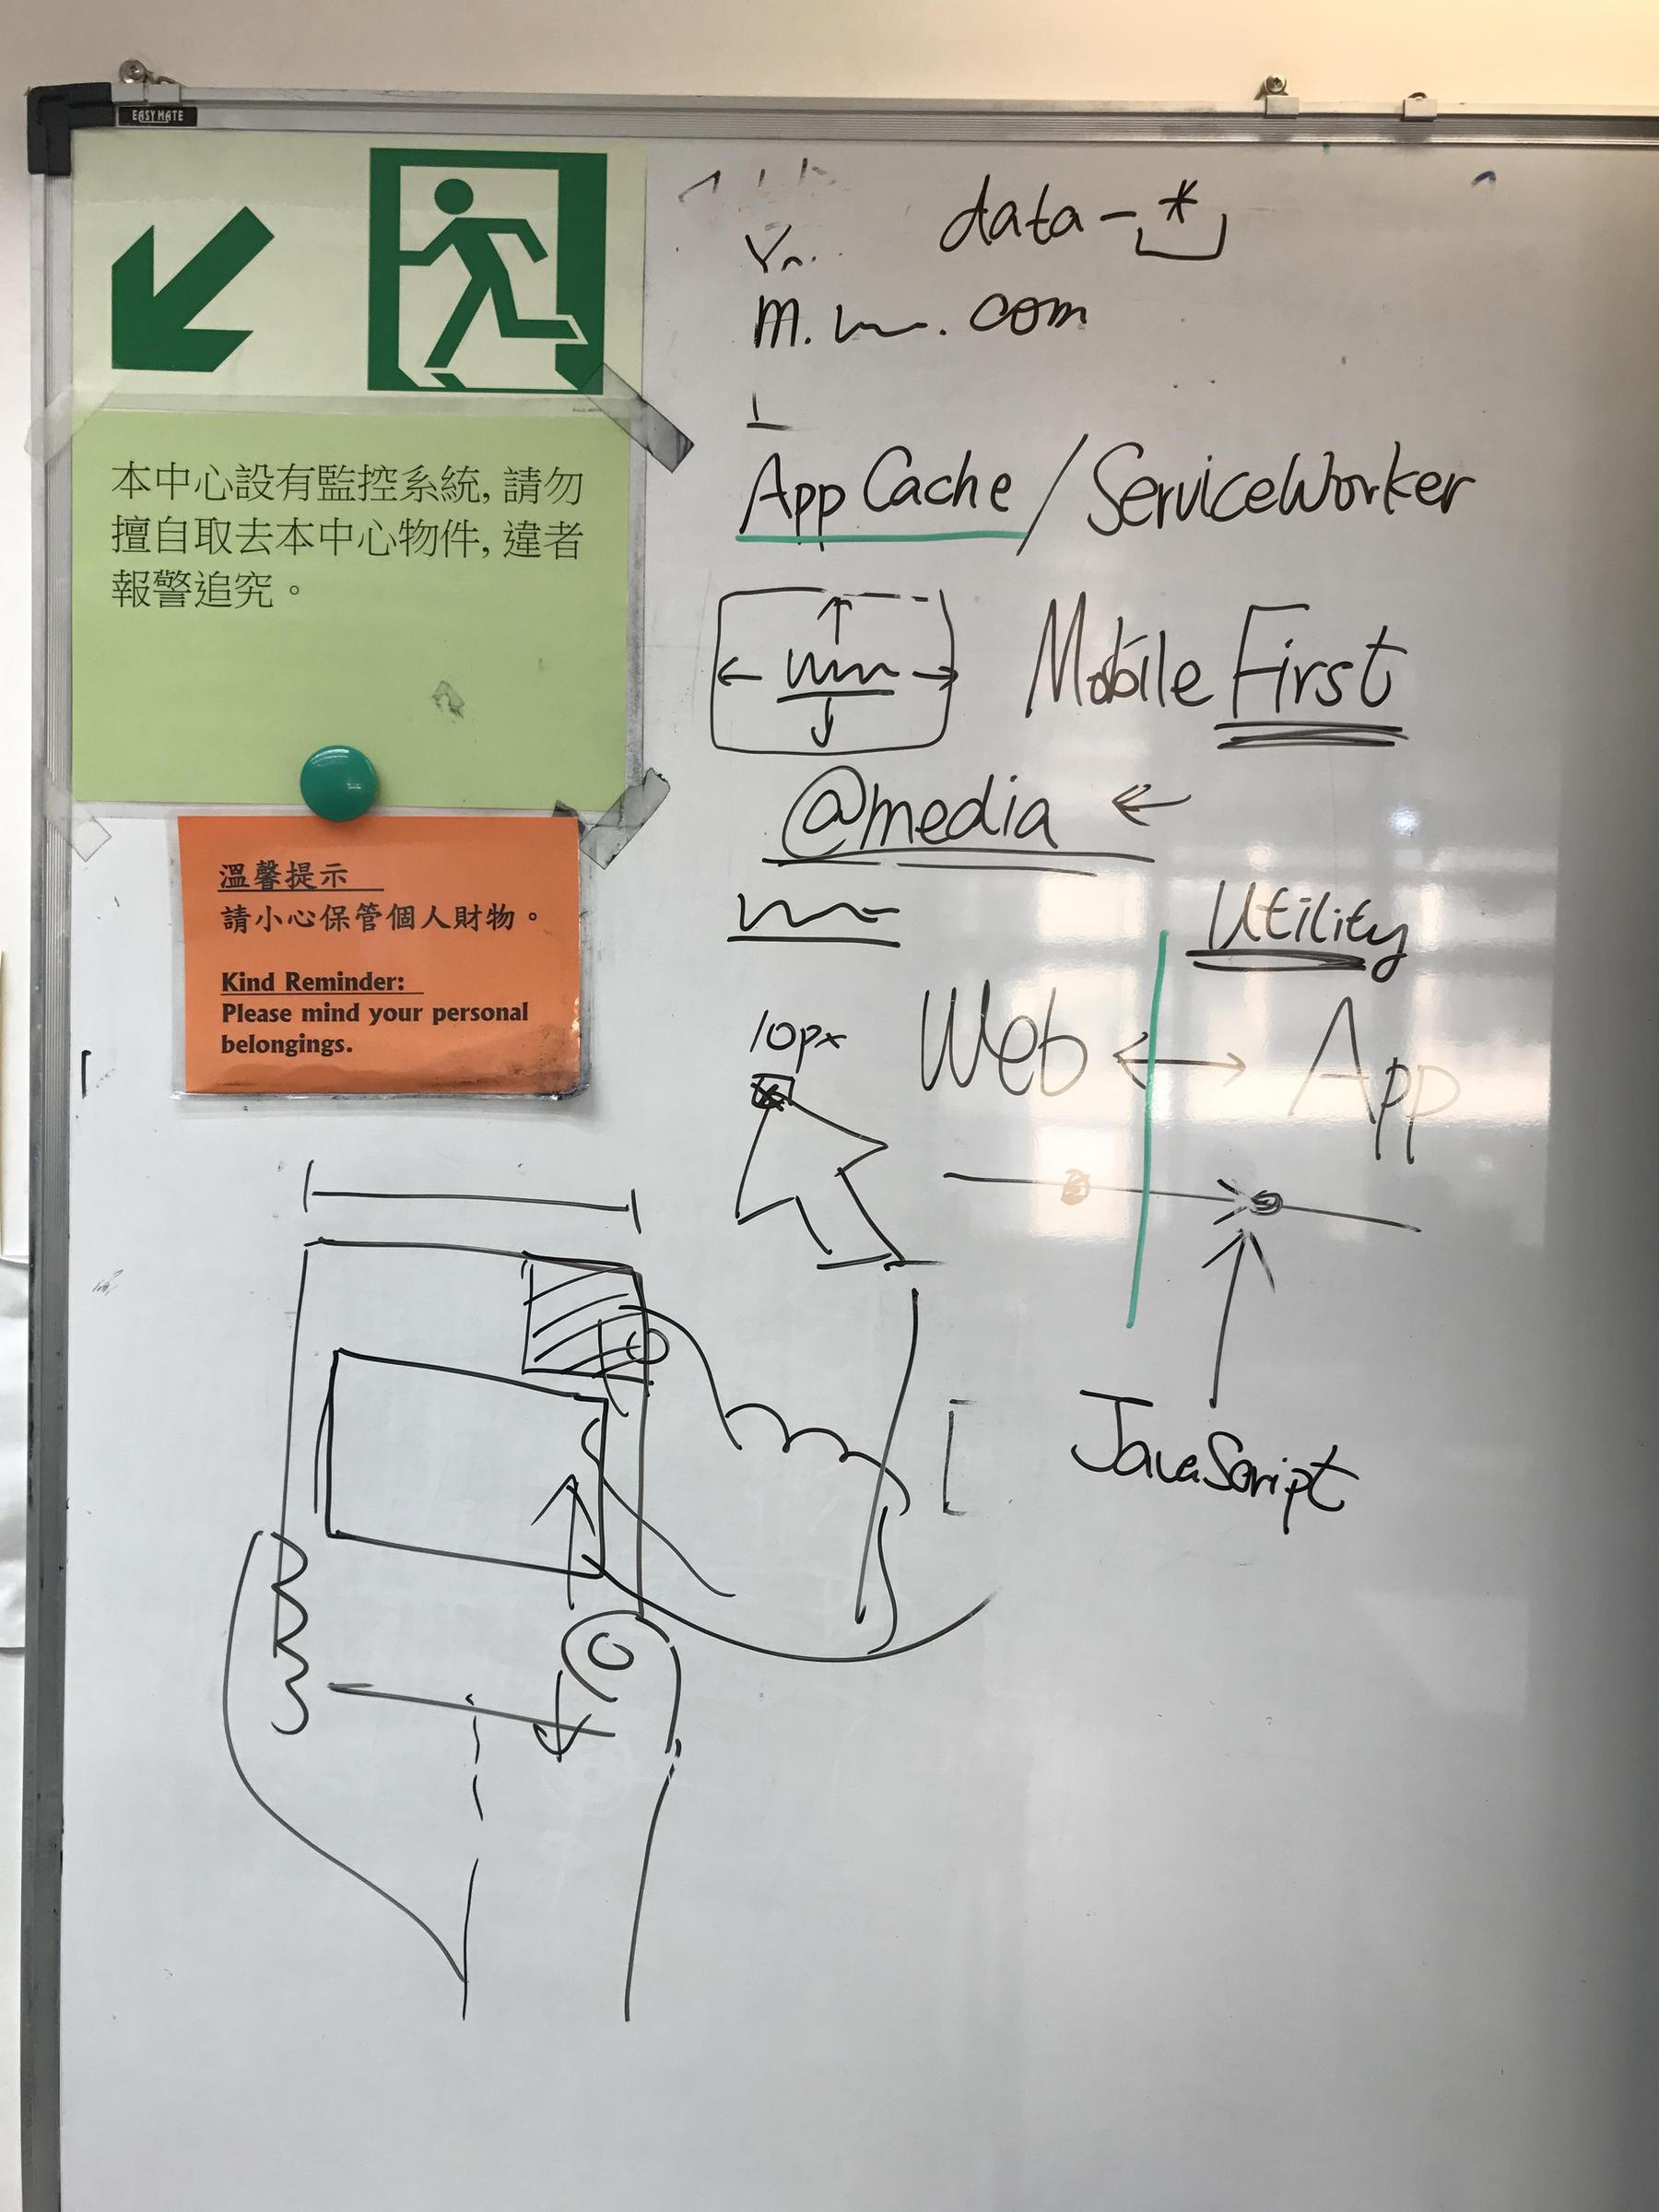 EASYMATE
本中心設有監控系統, 請勿
擅自取去本中心物件, 違者
報警追究。
溫馨提示
請小心保管個人財物。
Kind Reminder:
Please mind your personal
belongings.
data-*
m. . com
AppCache / ServiceWorker
Mobile First
@media
Utility
10px
Web
App
JavaScript